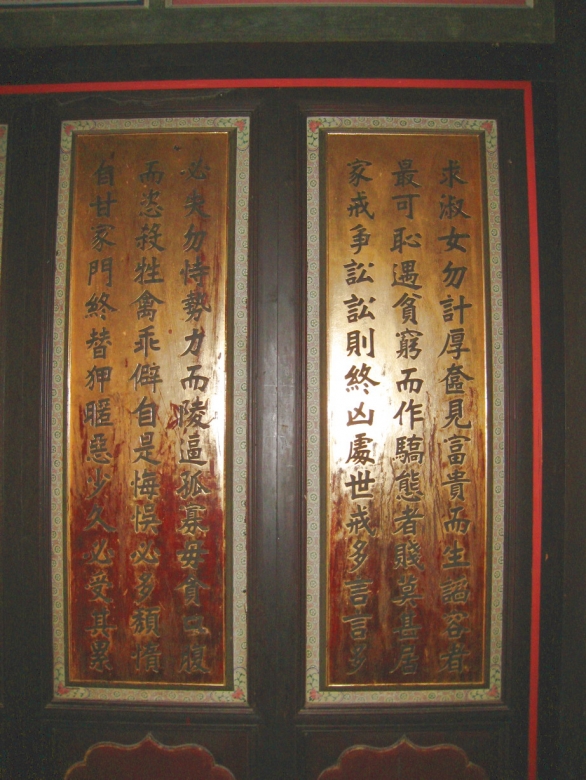 求淑女勿計厚奩見富貴而生謟容者
最可恥遇貧窮而作驕態者賤莫甚居
家戒爭訟訟則終凶處世戒多言言多
必失勿恃勢力而陵逼孤寡毋貪口腹
而恣殺牲禽乖僻自是悔悞必多頹惰
自甘家門終替狎暱惡少久必受其累